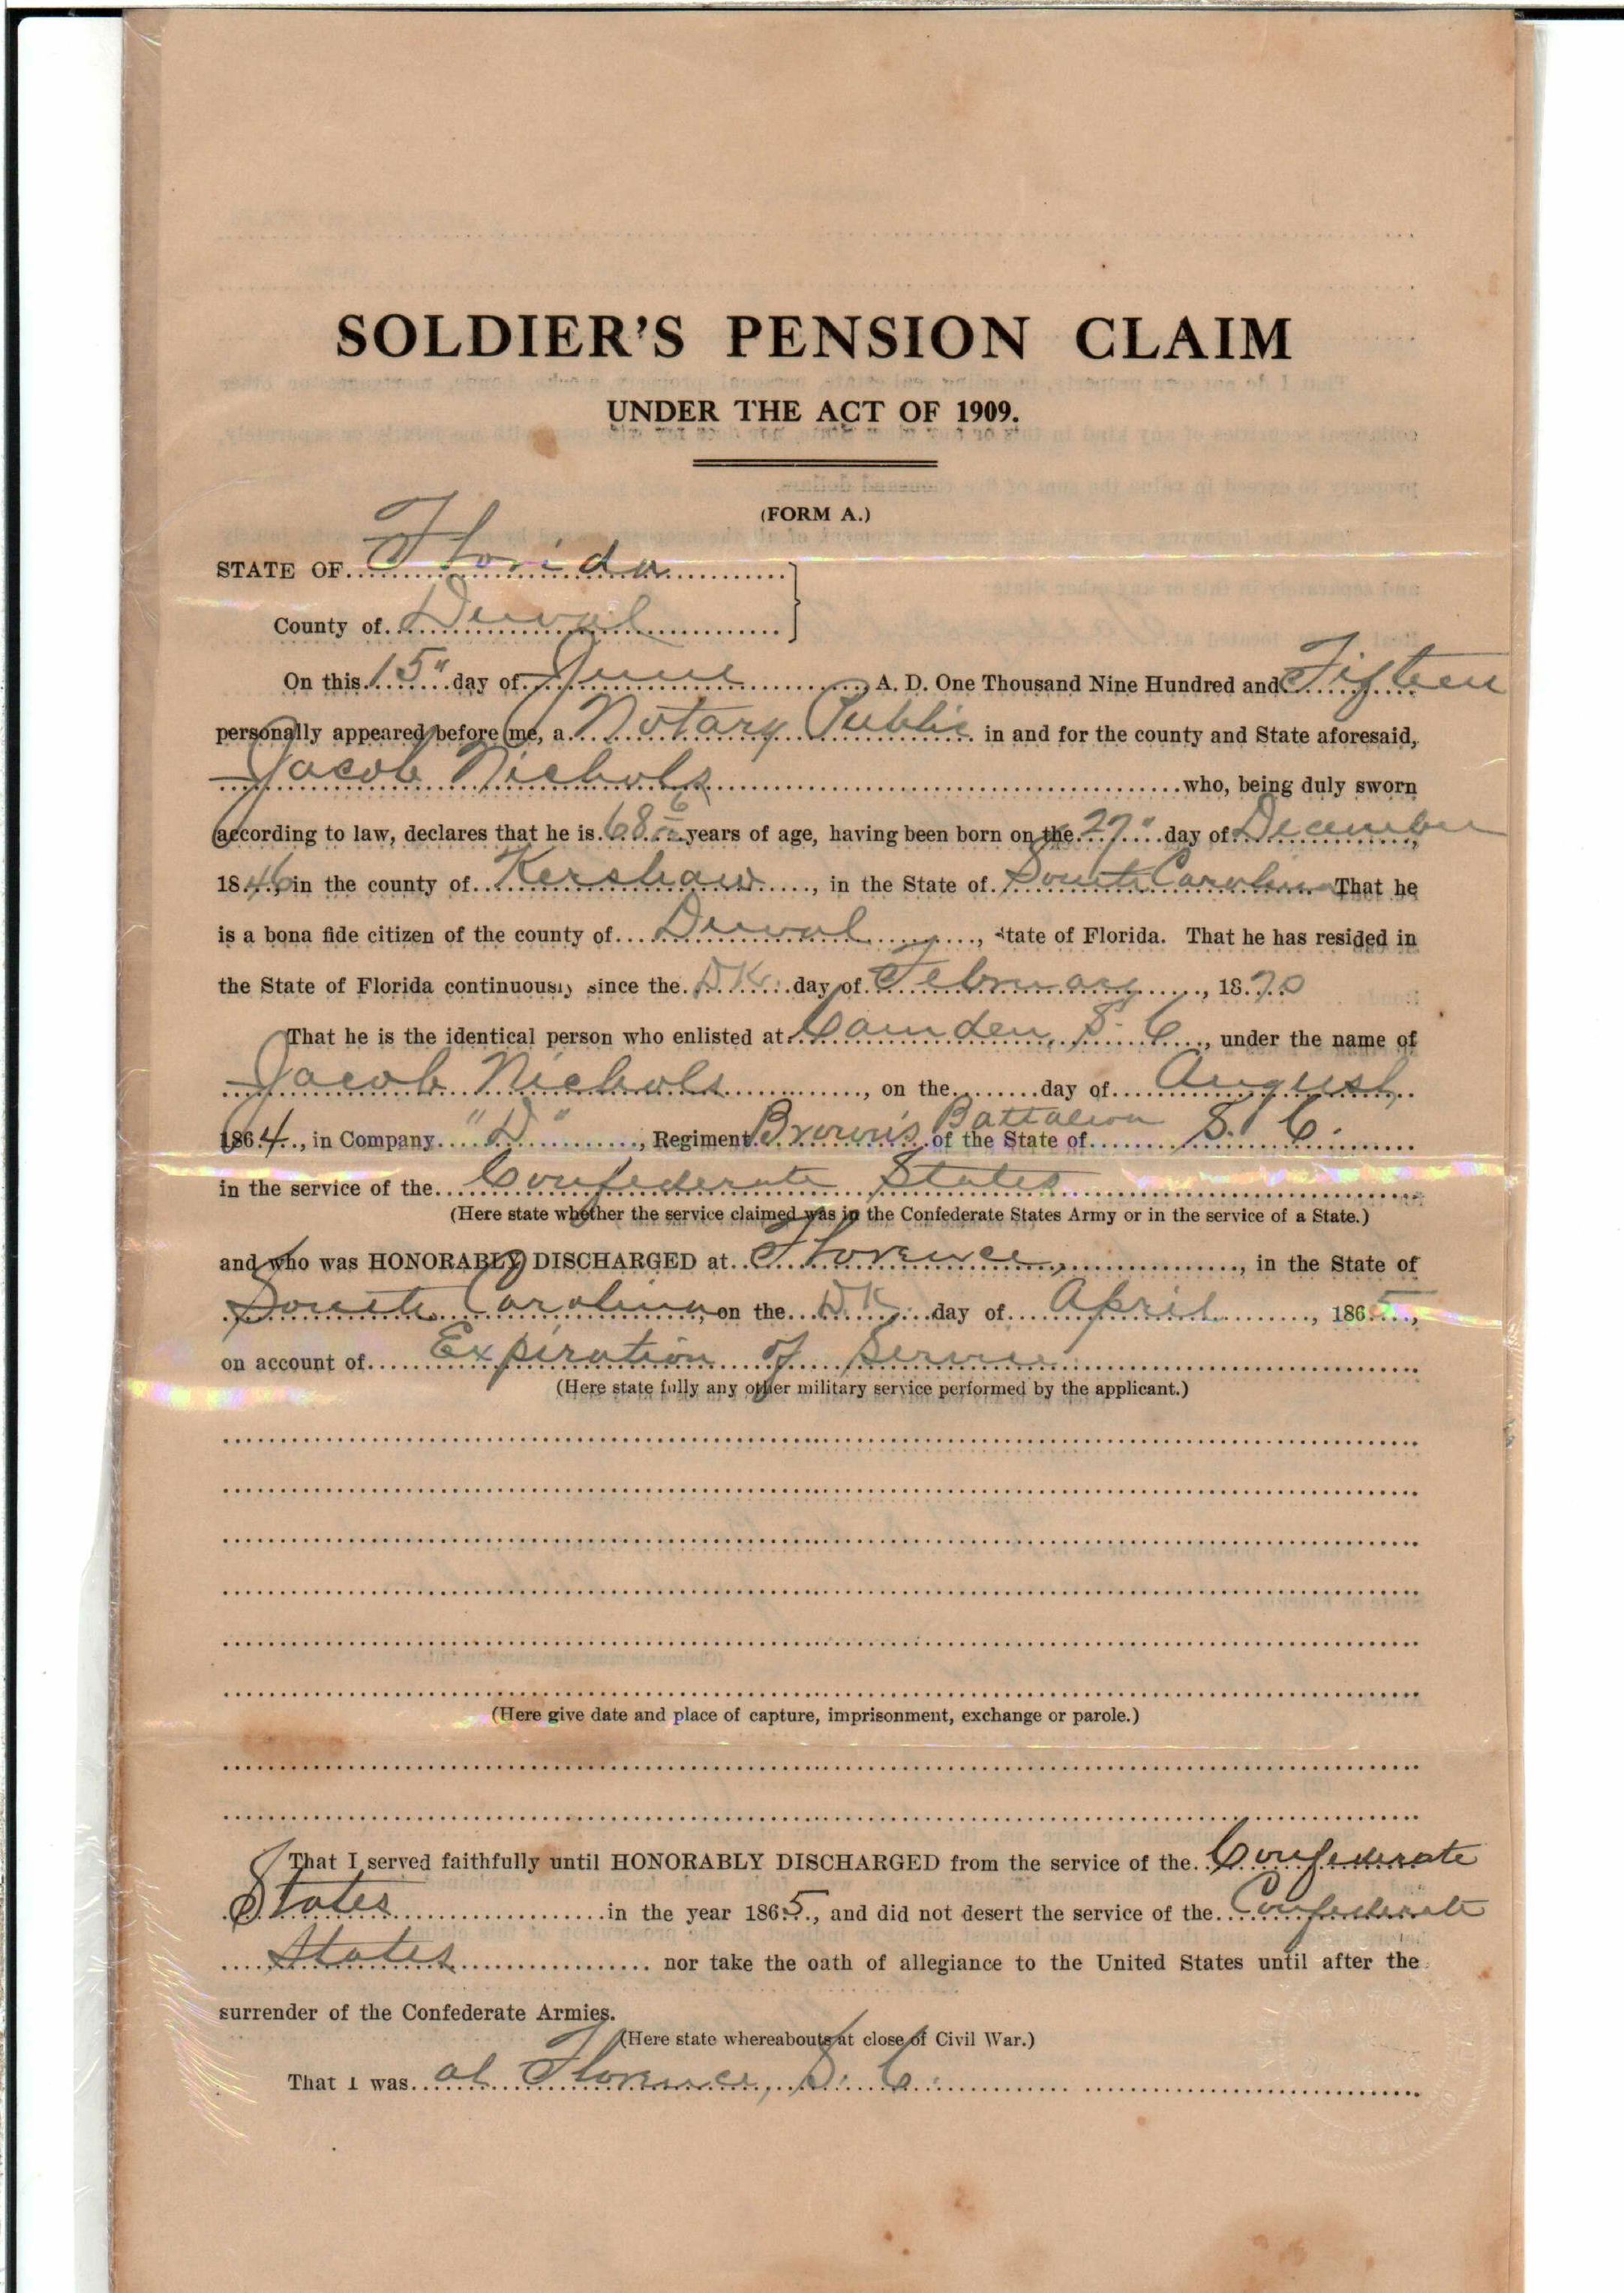 SOLDIER'S PENSION CLAIM
UNDER THE ACT OF 1909.
(FORM A.)
STATE OF Florida
County of Duval
On this 15" day of June A. D. One Thousand Nine Hundred and Fifteen
personally appeared before me, a Notary Public in and for the county and State aforesaid,
Jacob Nichols who, being duly sworn
according to law, declares that he is 68 years of age, having been born on the 27" day of December
1846, in the county of Kershaw, in the State of South Carolina That he
is a bona fide citizen of the county of Duval, State of Florida. That he has resided in
the State of Florida continuously since the D.K. day of February, 1870
That he is the identical person who enlisted at Camden, S. C., under the name of
Jacob Nichols, on the day of August,
1864, in Company "D", Regiment Brown's Battalion of the State of S. C.
in the service of the Confederate States
(Here state whether the service claimed was in the Confederate States Army or in the service of a State.)
and who was HONORABLY DISCHARGED at Florence, in the State of
South Carolina, on the D.K. day of April, 1865,
on account of Expiration of Service
(Here state fully any other military service performed by the applicant.)
(Here give date and place of capture, imprisonment, exchange or parole.)
That I served faithfully until HONORABLY DISCHARGED from the service of the Confederate
States in the year 1865, and did not desert the service of the Confederate
States nor take the oath of allegiance to the United States until after the
surrender of the Confederate Armies.
(Here state whereabouts at close of Civil War.)
That I was at Florence, S. C.